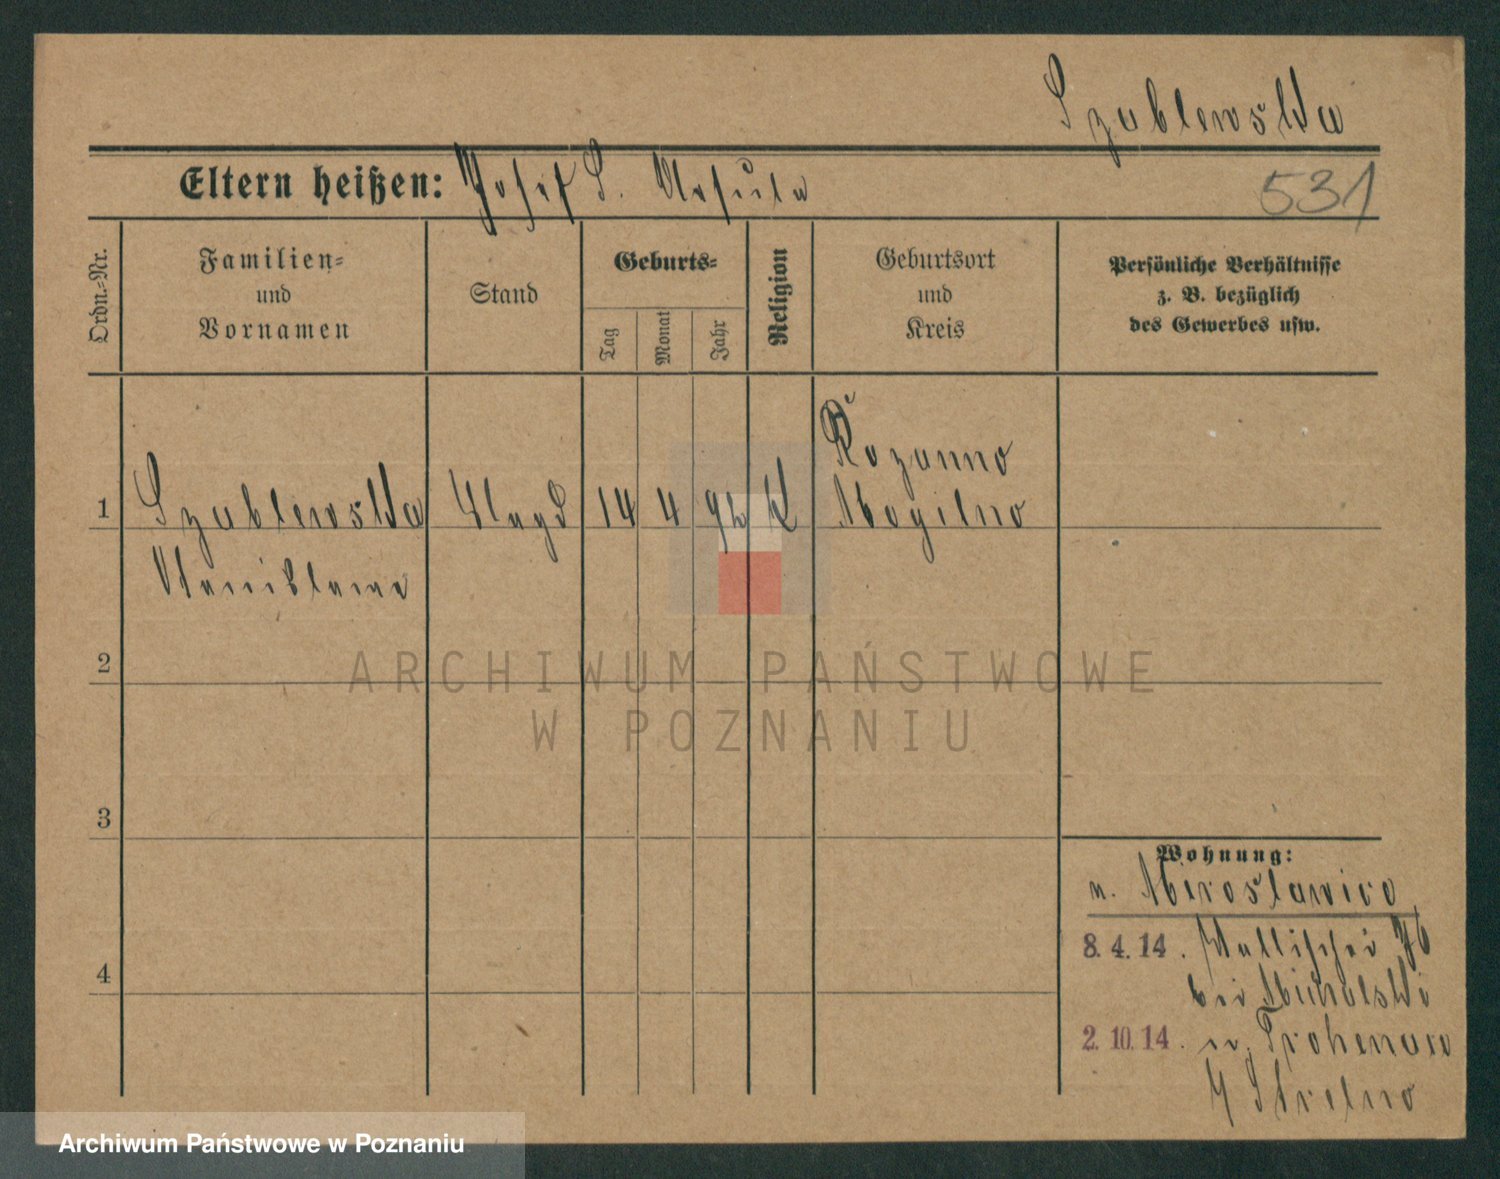 Szablewska
Eltern heißen: Josef S. Ursula
531
Ordn.-Nr.
Familien-
und
Vornamen
Stand
Geburts-
Tag
Monat
Jahr
Religion
Geburtsort
und
Kreis
Persönliche Verhältnisse
z. B. bezüglich
des Gewerbes usw.
1 Szablewska Magd 14 4 92 K Rozanno
Mogilno
Stanislawa
2
3
4
Wohnung:
n. Miroslawice
8. 4. 14. Wallischei 76
bei Michalski
2. 10. 14. n.
Strelno
ARCHIWUM PAŃSTWOWE
W POZNANIU
Archiwum Państwowe w Poznaniu